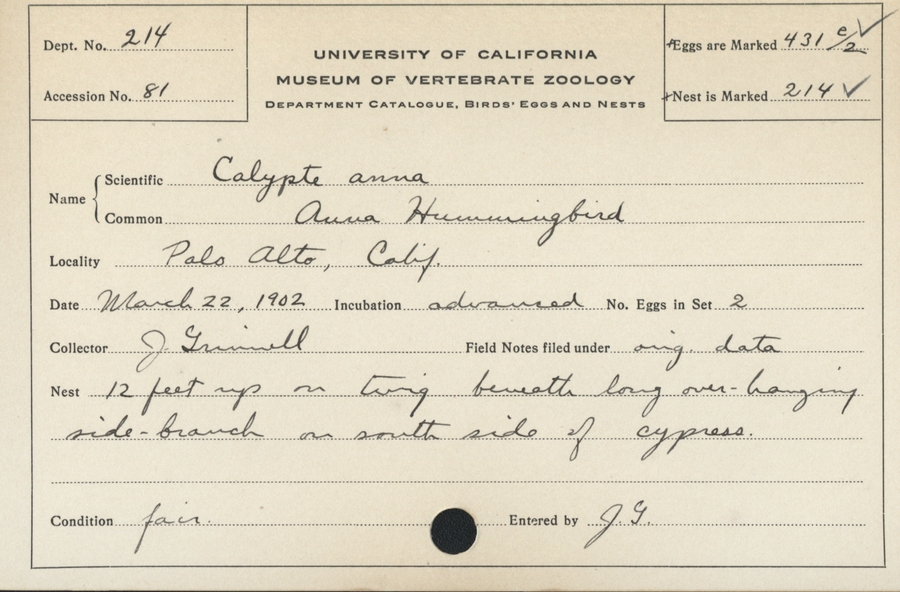 Dept. No. 214
Accession No. 81
UNIVERSITY OF CALIFORNIA
MUSEUM OF VERTEBRATE ZOOLOGY
DEPARTMENT CATALOGUE, BIRDS' EGGS AND NESTS
Eggs are Marked 431 e/2 ✓
Nest is Marked 214 ✓
Name { Scientific Calypte anna
Common Anna Hummingbird
Locality Palo Alto, Calif.
Date March 22, 1902 Incubation advanced No. Eggs in Set 2
Collector J. Grinnell Field Notes filed under orig. data
Nest 12 feet up on twig beneath long over-hanging
side-branch on south side of cypress.
Condition fair. Entered by J. G.